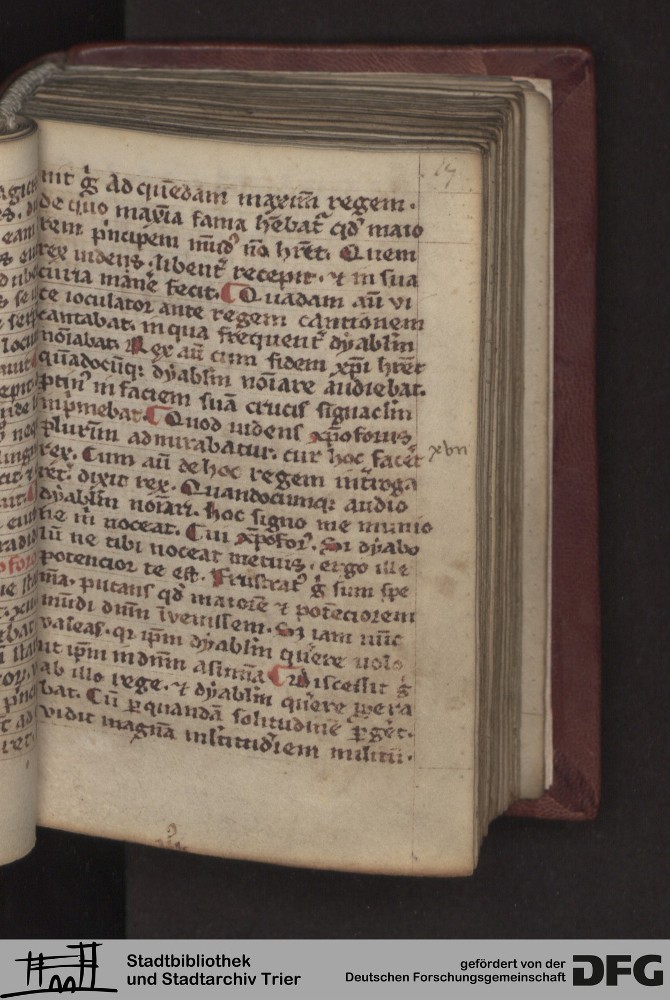 17
nit g̃ Ad quēdam maximū regem.
de quo maxīa fama hēbat᷑ qd' maio
rem p̃ncipem mūd' nō hr̄et. Quem
rex uidens. libent᷑ recepit. ⁊ in sua
curia mane᷑ fecit. ¶ Quadam aū vi
ce ioculator ante regem cantionem
cantabat. in qua frequent᷑ dyablm̄
noīabat. Rex aū cum fidem xp̄i hr̄et
quādocūq; dyablm̄ noīare audiebat.
ptin' in faciem suā crucis signaclm̄
inp̃mebat. ¶ Quod uidens xp̄oforus
plurīm admirabatur. cur hoc facet᷑
rex. Cum aū de hoc regem int᷑roga
ret. dixit rex. Quandocumq; audio
dyablm̄ noīari. hoc signo me munio
ne m̄ noceat. Cui xp̄ofor'. Si dyabo
lū ne tibi noceat metuis. ergo ille
potencior te est. Frustrat' g̃ sum spe
mā. putans qd' maiorē ⁊ potēciorem
mūdi dn̄m īvenissem. Sz iam nūc
valeas. qr ip̄m dyablm̄ que᷑re uolo
ut ip̄m in dn̄m asimiā ¶ Discessit g̃
ab illo rege. ⁊ dyablm̄ que᷑re ꝓpera
bat. Cū ꝑ quandā solitudinē ꝑget᷑.
vidit magnā mltitudīem militū.
xvn
Stadtbibliothek
und Stadtarchiv Trier
gefördert von der
Deutschen Forschungsgemeinschaft
DFG